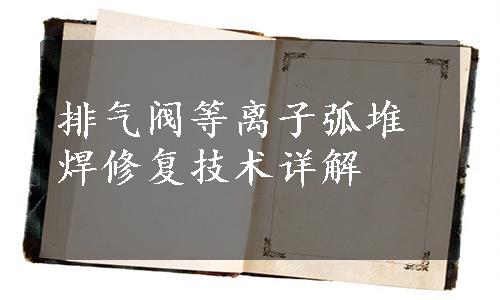 排气阀等离子弧堆
焊修复技术详解